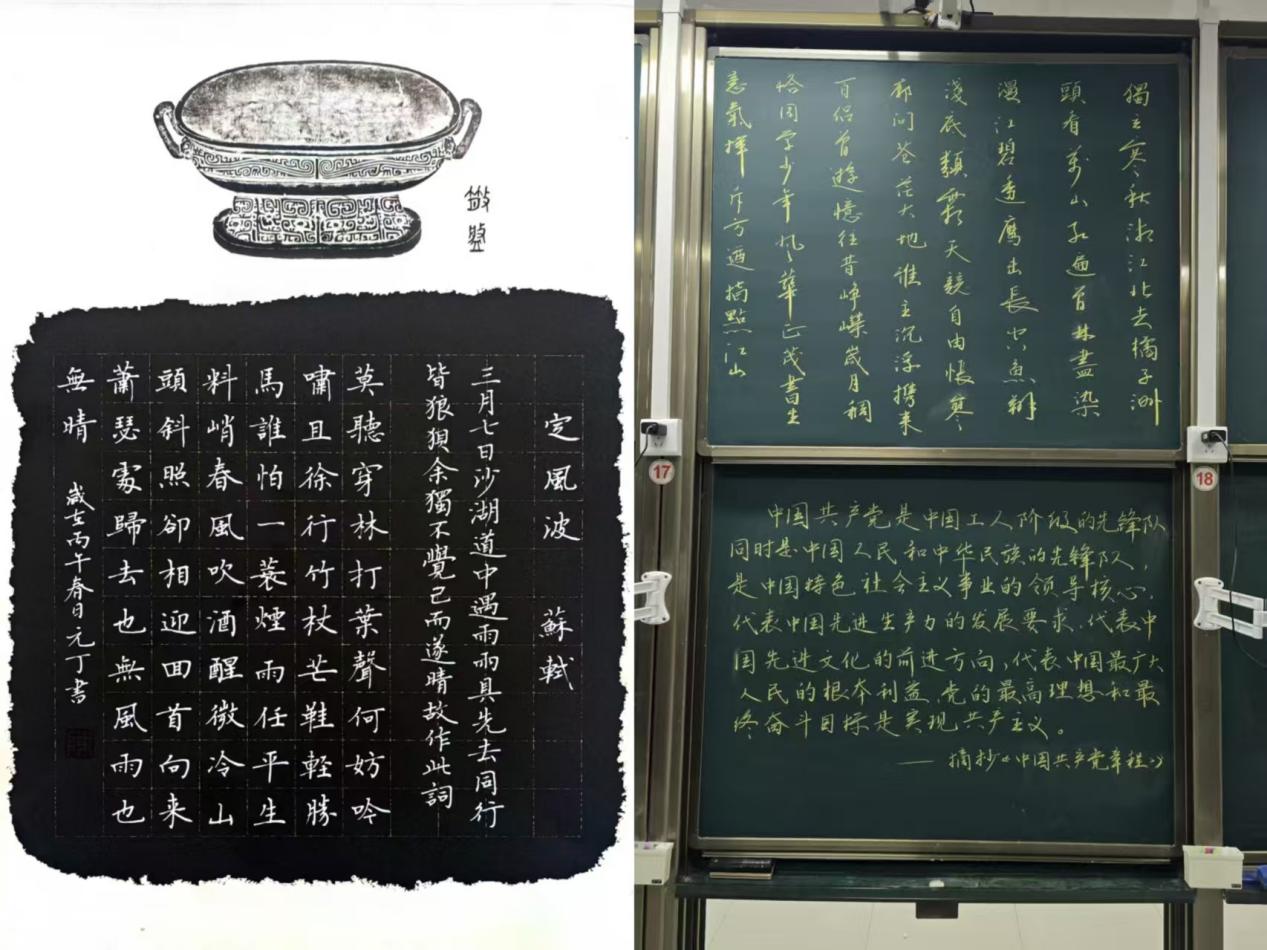 定風波 蘇軾
三月七日沙湖道中遇雨雨具先去同行
皆狼狽余獨不覺已而遂晴故作此詞
莫聽穿林打葉聲何妨吟
嘯且徐行竹杖芒鞋輕勝
馬誰怕一蓑煙雨任平生
料峭春風吹酒醒微冷山
頭斜照卻相迎回首向来
蕭瑟處歸去也無風雨也
無晴 歲在丙午春日元丁書
獨立寒秋湘江北去橘子洲
頭看萬山红遍層林盡染
漫江碧透鹰击長空魚翔
淺底類霜天競自由悵寥
廓问苍茫大地谁主沉浮携来
百侣曾遊憶往昔崢嶸歲月稠
恰同学少年风華正茂書生
意氣揮斥方遒指點江山
17
18
中国共产党是中国工人阶级的先锋队
同时是中国人民和中华民族的先锋队，
是中国特色社会主义事业的领导核心，
代表中国先进生产力的发展要求，代表中
国先进文化的前进方向，代表中国最广大
人民的根本利益，党的最高理想和最
终奋斗目标是实现共产主义。
——摘抄《中国共产党章程》